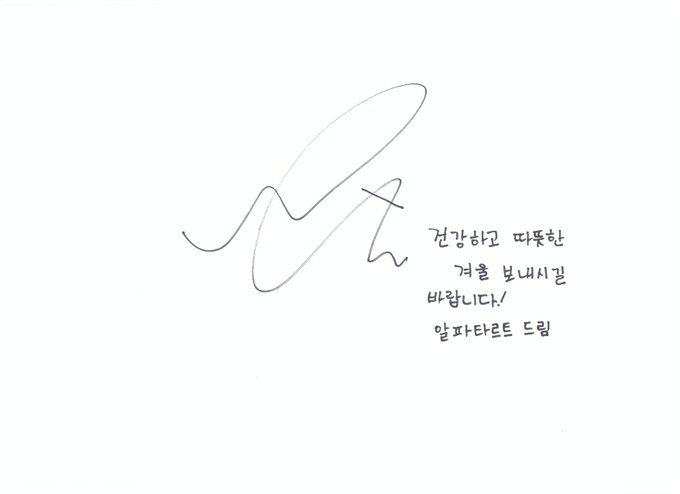 건강하고 따뜻한
겨울 보내시길
바랍니다!
알파타르트 드림